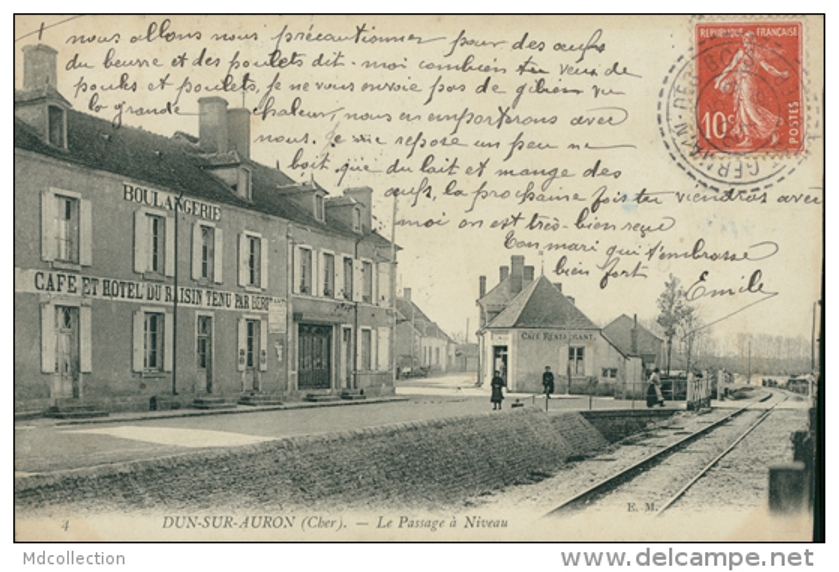 nous allons nous précautionner pour des œufs
du beurre et des poulets dit-moi combien tu veux de
poules et poulets, je ne vous envoie pas de gibier vu
la grande chaleur, nous en emporterons avec
nous. Je me repose un peu ne
boit que du lait et mange des
œufs, la prochaine fois tu viendras avec
moi on est très-bien reçu
Ton mari qui t'embrasse
bien fort
Emile
REPUBLIQUE FRANÇAISE
10c
POSTES
BOULANGERIE
CAFÉ ET HÔTEL DU RAISIN TENU PAR
CAFÉ RESTAURANT
E. M.
4 DUN-SUR-AURON (Cher). — Le Passage à Niveau
Mdcollection
© the delcampe.net